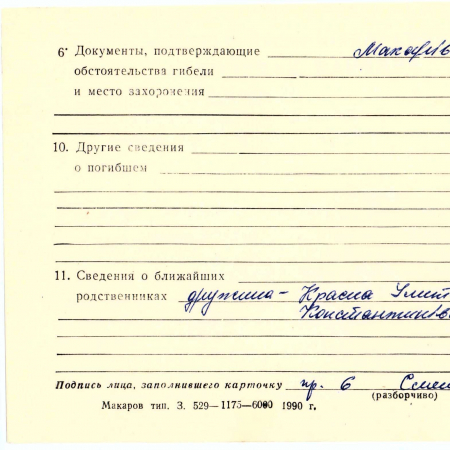 6* Документы, подтверждающие
обстоятельства гибели
и место захоронения
10. Другие сведения
о погибшем
11. Сведения о ближайших
родственниках дружина – Красна
Константинів
Подпись лица, заполнившего карточку пр. 6 Смеш
(разборчиво)
Макаров тип. З. 529—1175—6000 1990 г.